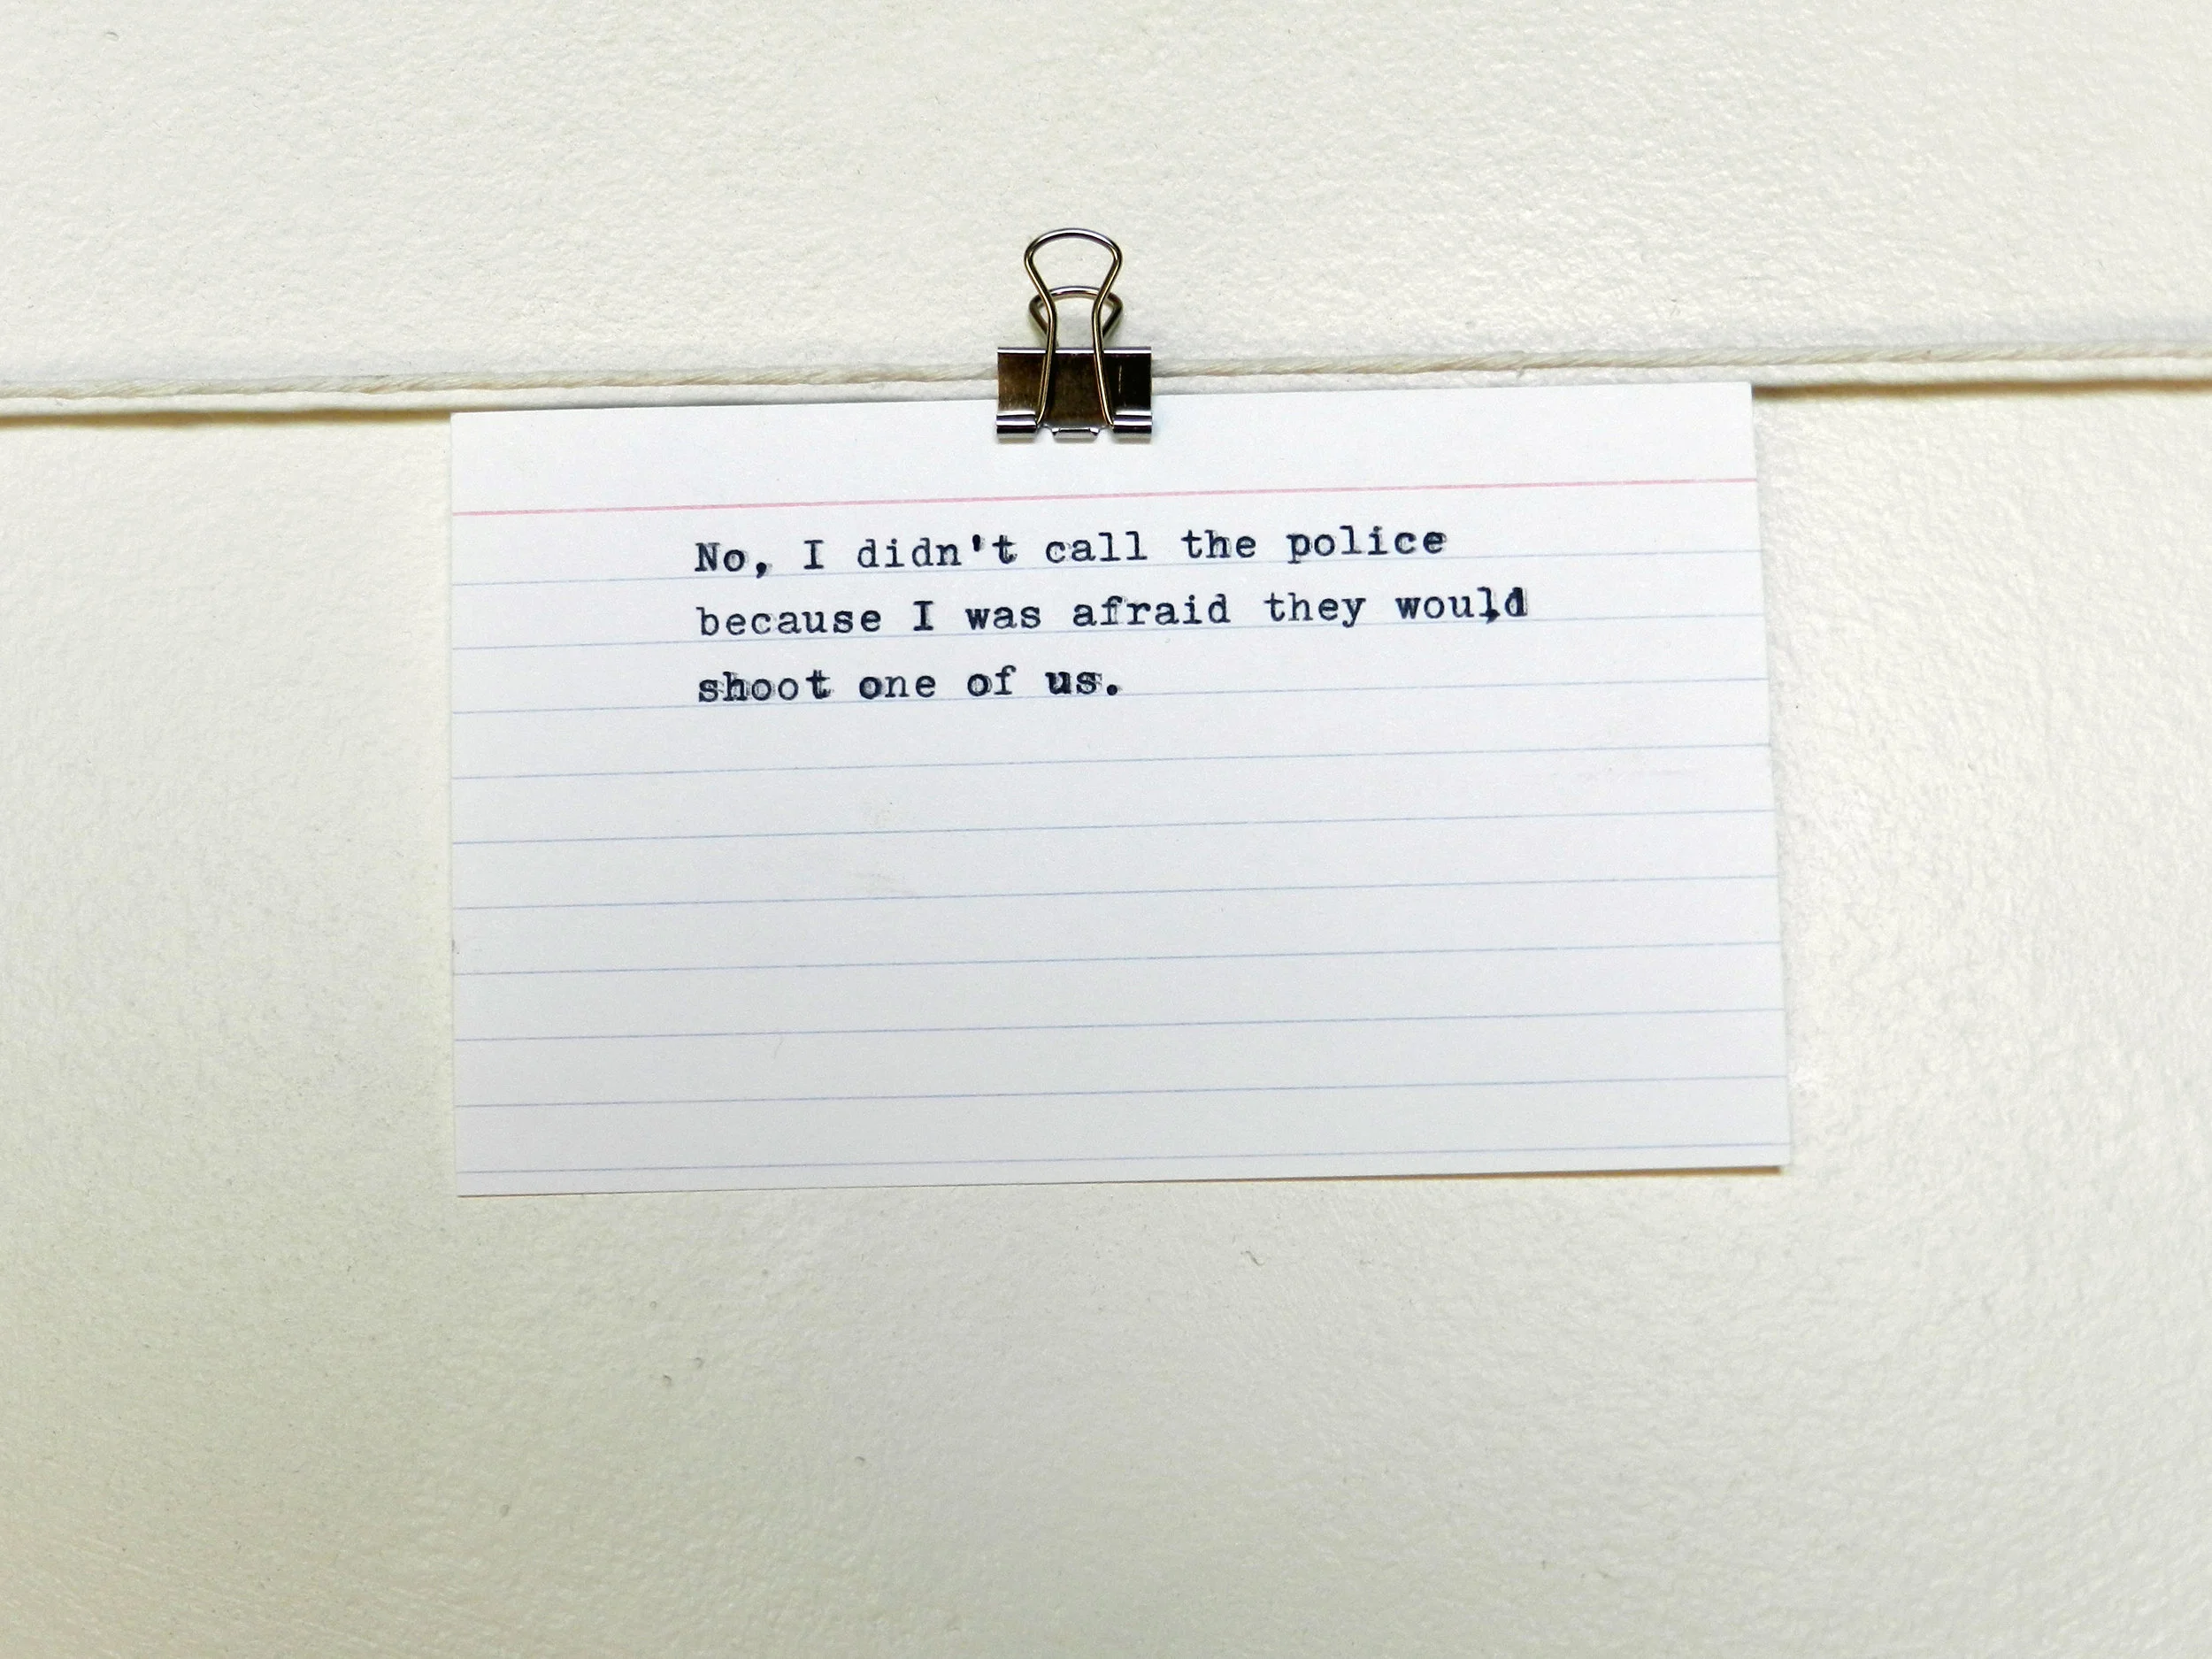 No, I didn't call the police
because I was afraid they would
shoot one of us.